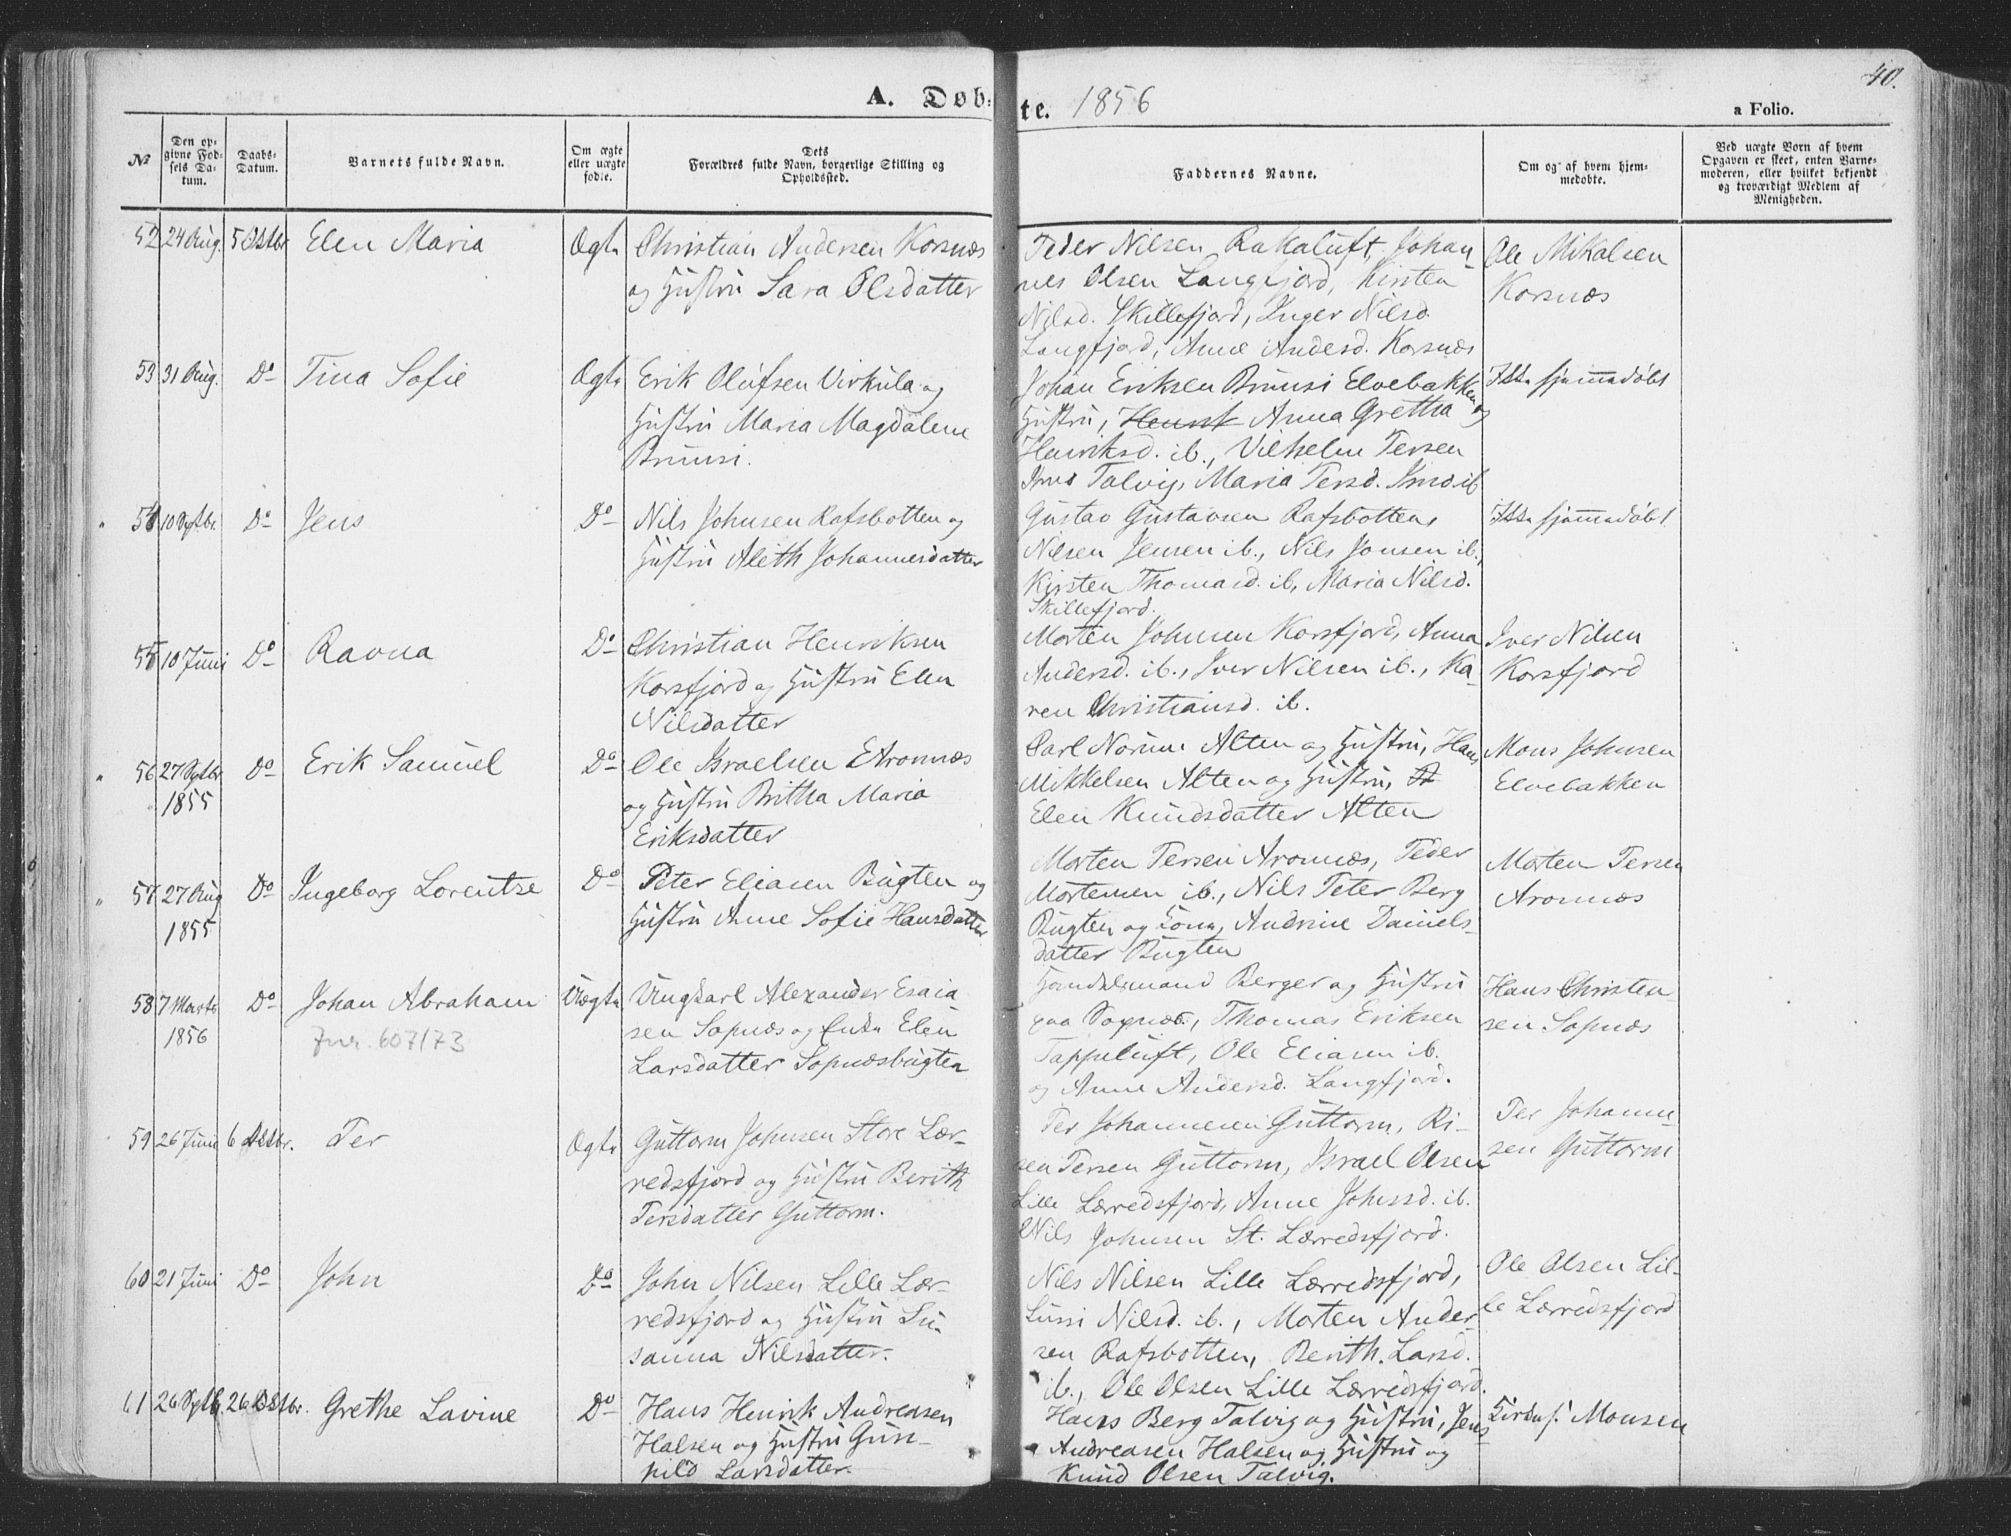 40.
A. Døb-te. 1856
a Folio.
№
Den op-givne Fød-sels Da-tum.
Daabs-Datum.
Barnets fulde Navn.
Om ægte eller uægte fødte.
Dets Forældres fulde Navn, borgerlige Stilling og Opholdssted.
Faddernes Navne.
Om og af hvem hjem-medøbte.
Ved uægte Børn af hvem Opgaven er skeet, enten Barne-moderen, eller hvilket bekjendt og troværdigt Medlem af Menigheden.
52 24 Aug. 5 Oktbr. Elen Maria Ægte Christian Andersen Korsnæs
og Hustru Sara Olsdatter
Peder Nilsen Rakaluft, Johan-
nes Olsen Langfjord, Kirsten
Nilsd. Skillefjord, Inger Nilsd.
Langfjord, Anne Andersd. Korsnæs
Ole Mikalsen
Korsnæs
53 31 Aug. Do Tina Sofie Ægte Erik Olufsen Virkula og
Hustru Maria Magdalene
Bruusi.
Johan Eriksen Bruusi Elvebakken og
Hustru, Henrik Anna Gretha
Henriksd. ib., Vilhelm Persen
Talvig, Maria Persd. ib
Ikke hjemmedøbt
54 10 Septbr. Do Jens Do Nils Johnsen Rafsbotten og
Hustru Aleth Johannesdatter
Gustav Gustavsen Rafsbotten,
Nilsen Jensen ib., Nils Jonsen ib.,
Kirsten Thomasd. ib, Maria Nilsd.
Skillefjord.
Ikke hjemmedøbt
55 10 Juni Do Ravna Do Christian Henriksen
Korsfjord og Hustru Elen
Nilsdatter
Morten Johnsen Korsfjord, Anna
Andersd. ib., Iver Nilsen ib., Ka-
ren Christiansd. ib.
Iver Nilsen
Korsfjord
56 27 Septbr 1855 Do Erik Samuel Do Ole Israelsen Aronnæs
og Hustru Britha Maria
Eriksdatter
Carl Norum Alten og Hustru, Hans
Mikkelsen Alten og Hustru,
Elen Knudsdatter Alten
Mons Johnsen
Elvebakken
57 27 Aug 1855 Do Ingeborg Lorentze Do Peter Eliasen Bugten og
Hustru Anne Sofie Hansdatter
Morten Persen Aronnæs, Peder
Mortensen ib., Nils Peter Berg
Bugten og Kone, Andrine Daniels-
datter Bugten
Morten Persen
Aronnæs
58 7 Marts 1856 Do Johan Abraham Uægte Ungkarl Alexander Esaia
sen Sopnæs og Enke Elen
Larsdatter Sopnæsbugten
Jnr. 607/73
Handelsmand Berger og Hustru
paa Sopnæs, Thomas Eriksen
Tappeluft, Ole Eliasen ib.
og Anne Andersd. Langfjord.
Hans Christen-
sen Sopnæs
59 26 Juni 6 Oktbr. Per Ægte Guttorm Johnsen Store Lær-
redsfjord og Hustru Berith
Persdatter Guttorm.
Per Johannesen Guttorm, Ri-
sen Persen Guttorm, Israel Olsen
Lille Lærredsfjord, Anne Johnsd. ib.
Nils Johnsen St. Lærredsfjord.
Per Johanne-
sen Guttorm
60 21 Juni Do John Do John Nilsen Lille Lær-
redsfjord og Hustru Su-
sanna Nilsdatter.
Nils Nilsen Lille Lærredsfjord,
Sussi Nilsd. ib., Morten Ander-
sen Rafsbotten, Berith Larsd.
ib., Ole Olsen Lille Lærredsfjord.
Ole Olsen Lil-
le Lærredsfjord
61 26 Septb. 26 Oktbr. Grethe Lavine Do Hans Henrik Andreasen
Halsen og Hustru Gun-
hild Larsdatter.
Hans Berg Talvig og Hustru, Jens
Andreasen Halsen og Hustru og
Knud Olsen Talvig.
Monsen